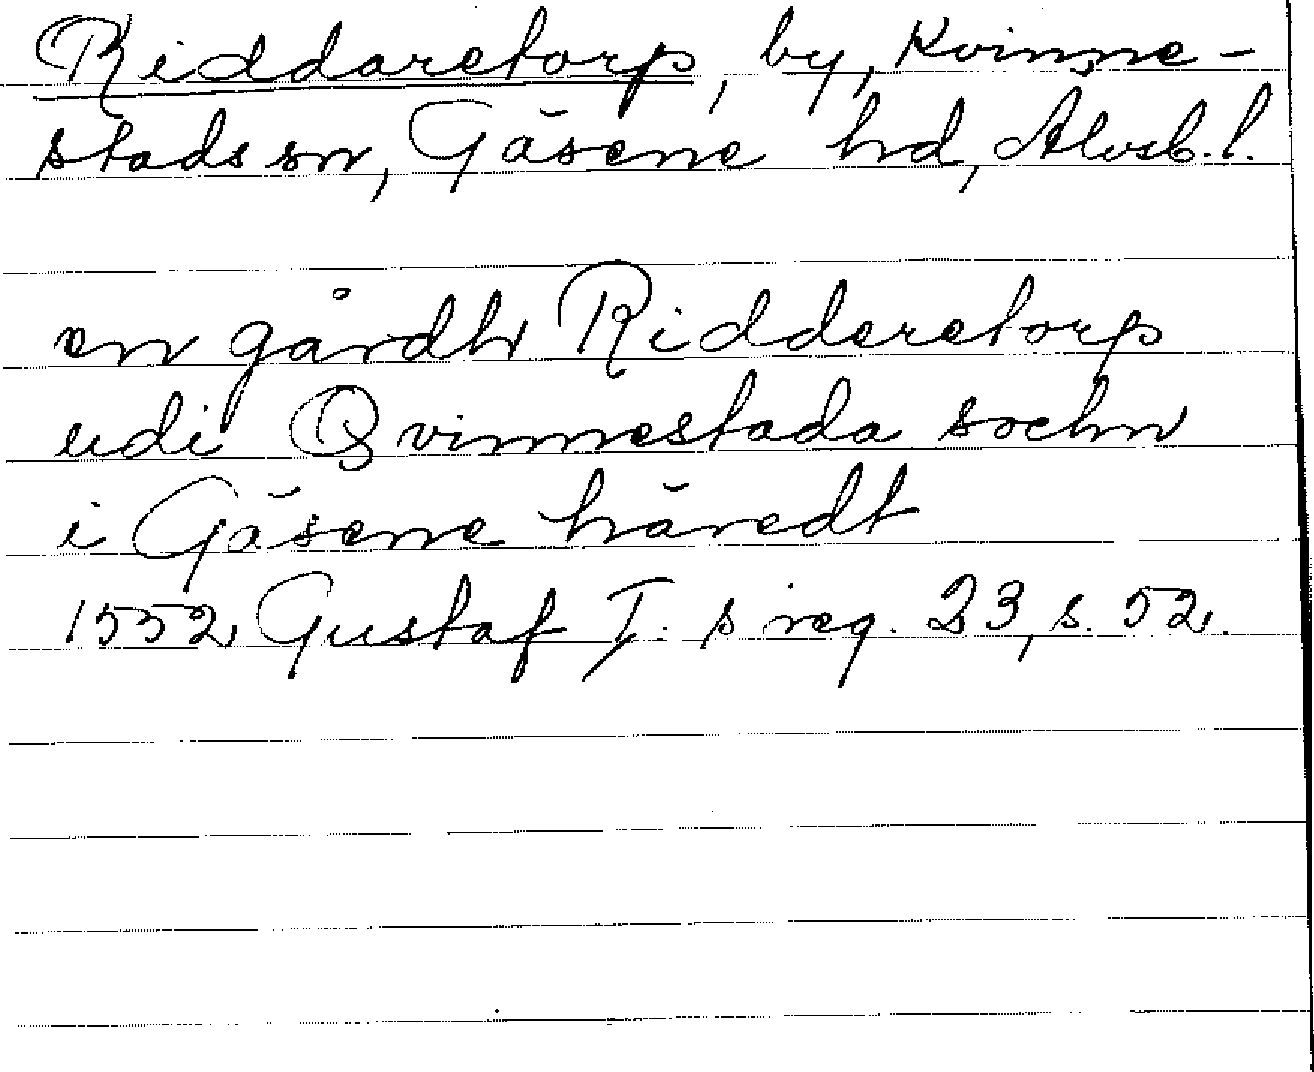 Riddaretorp, by, Kvinne-
stads sn, Gäsene hd, Älvsb. l.
en gårdh Ridderetorp
udi Qvinnestada sochn
i Gäsene häredt
1552, Gustaf I:s reg. 23, s. 52.